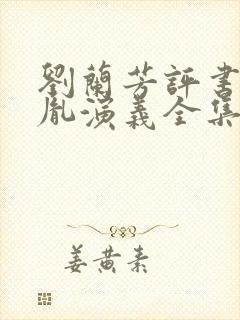 劉蘭芳評書
胤演義全集
姜黄素